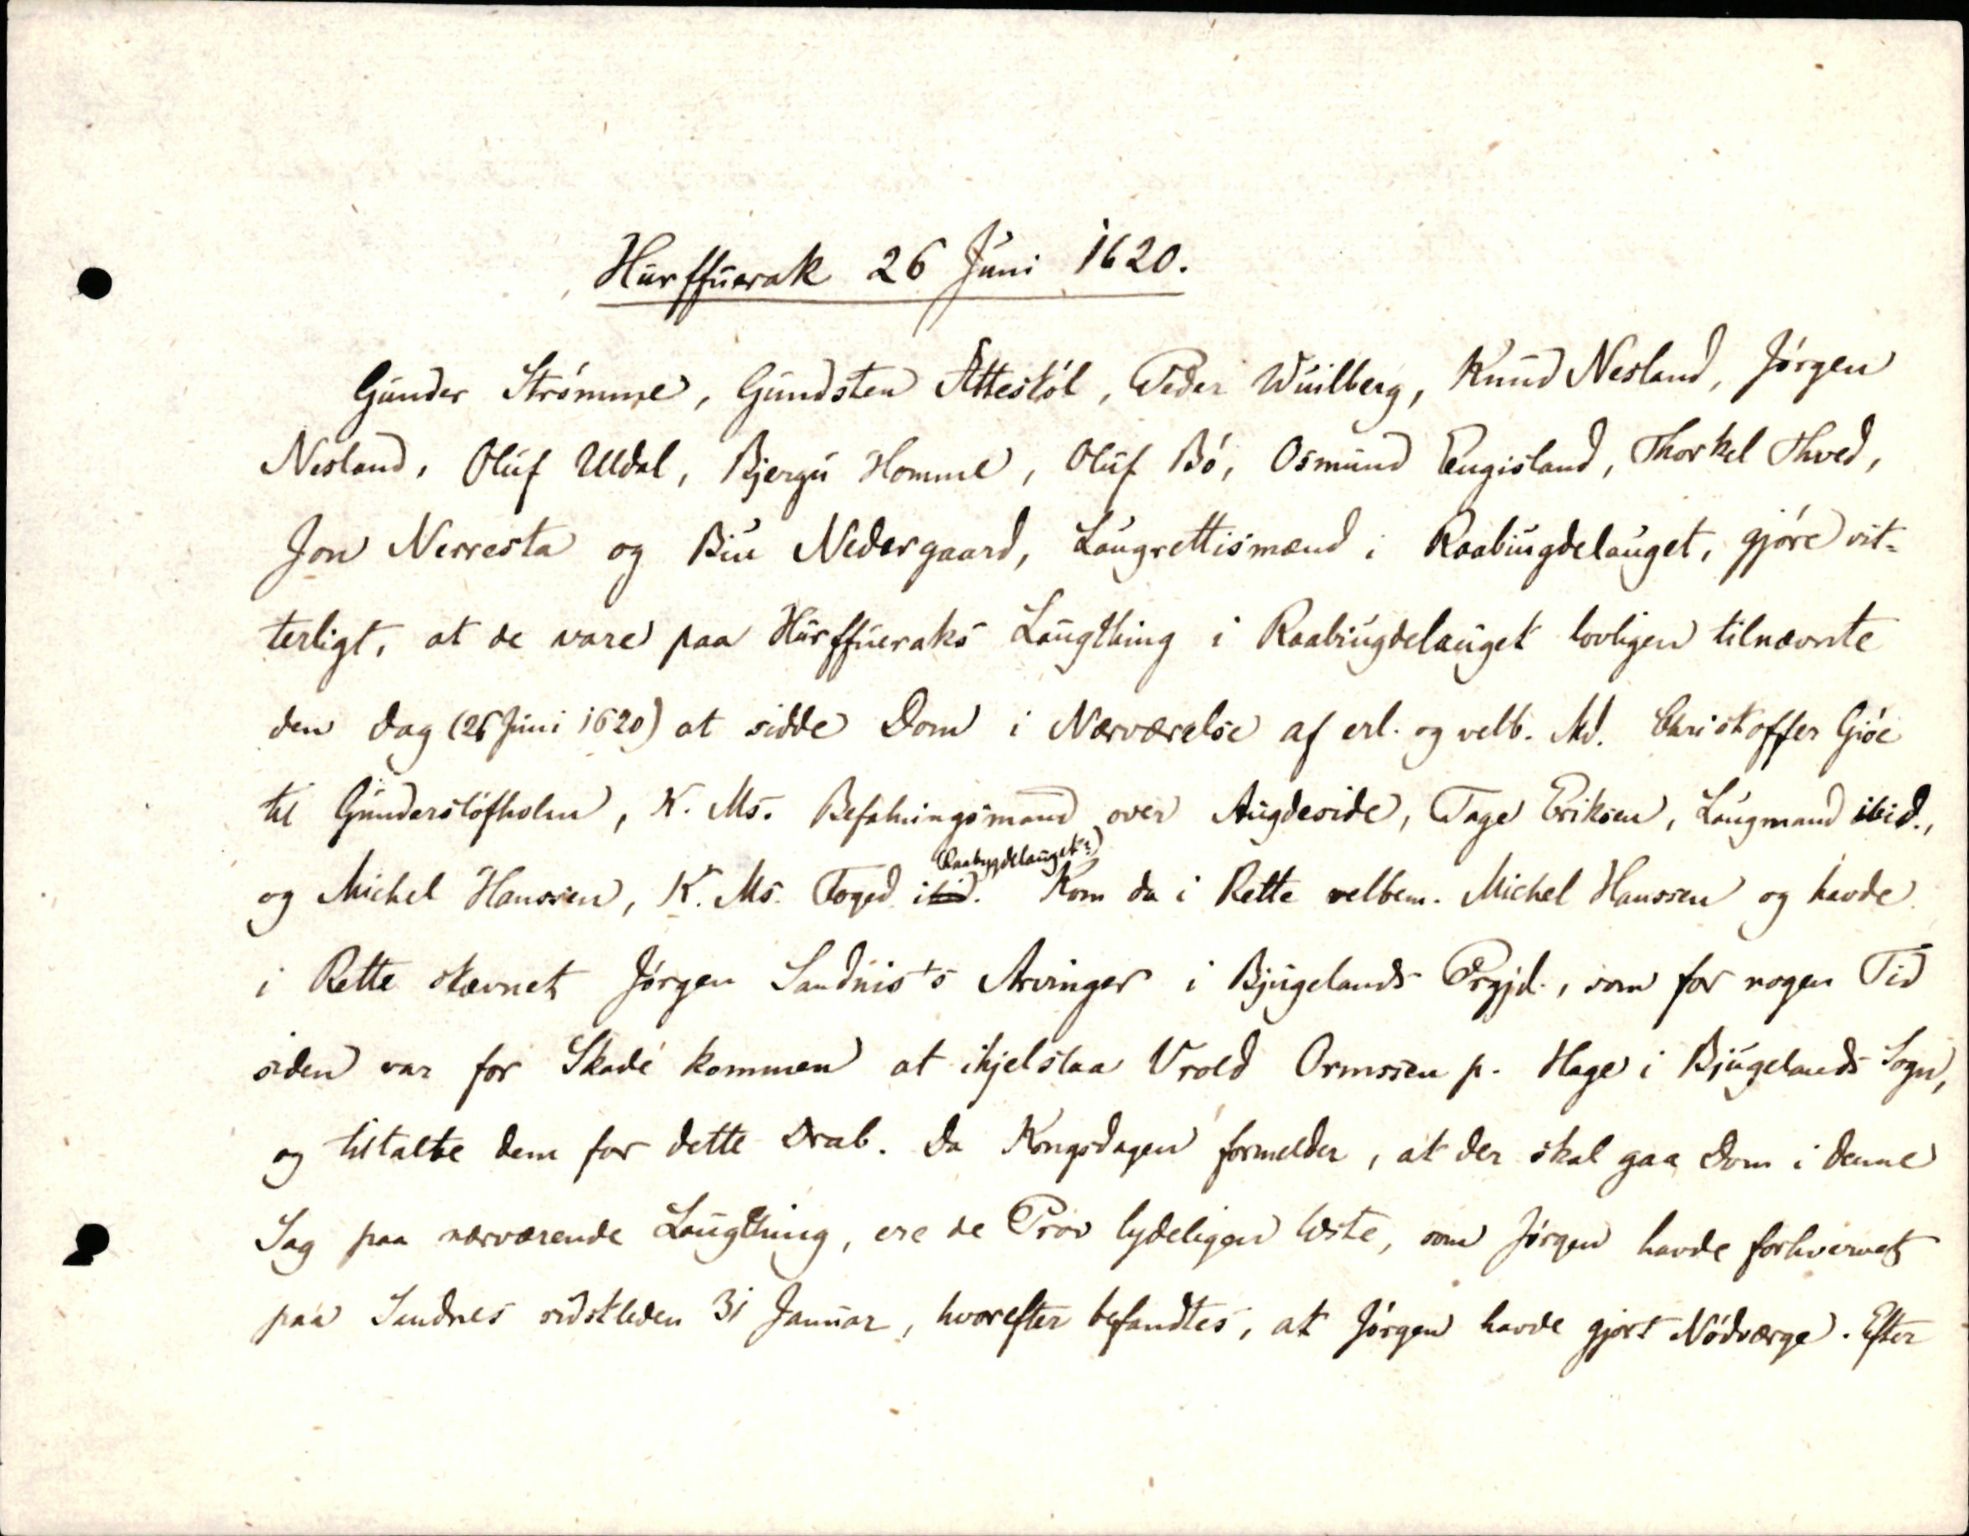 Hurffuerak 26 Juni 1620.
Gunder Strømme, Gundsten Åttestøl, Peder Wuilberg, Knud Nesland, Jørgen
Nesland, Oluf Uldal, Bjergu Homme, Oluf Bø, Osmund Eugisland, Thorkel Thved,
Jon Nerresta og Biu Nedergaard, Laugrettismænd i Raabiugdelauget, gjøre vit-
terligt, at de vare paa Hurffueraks Laugthing i Raabiugdelauget lovligen tilnævnte
den Dag (26 Juni 1620) at sidde Dom i Nærværelse af erl. og velb. Md. Christoffer Giøe
til Gunderslöfholm, K. Ms. Befalningsmand over Augdeside, Tage Eriksen, Laugmand ibid.,
(Raabygdelauget:)
og Michel Hanssen, K. Ms. Foged ibid. Kom da i Rette velbem. Michel Hanssen og havde
i Rette stævnet Jørgen Sandnis's Arvinger i Bjugelands Prgjd., som for nogen Tid
siden var for Skade kommen at ihjelslaa Vrold Ormssen p. Hage i Bjugelands Sogn,
og tiltalte dem for dette Drab. Da Kongsdagen formelder, at der skal gaa Dom i denne
Sag paa nærværende Laugthing, ere de Prov lydeligen læste, som Jørgen havde forhvervet
paa Sandnes sidstleden 31 Januar, hvorefter befandtes, at Jørgen havde gjort Nødværge. Efter